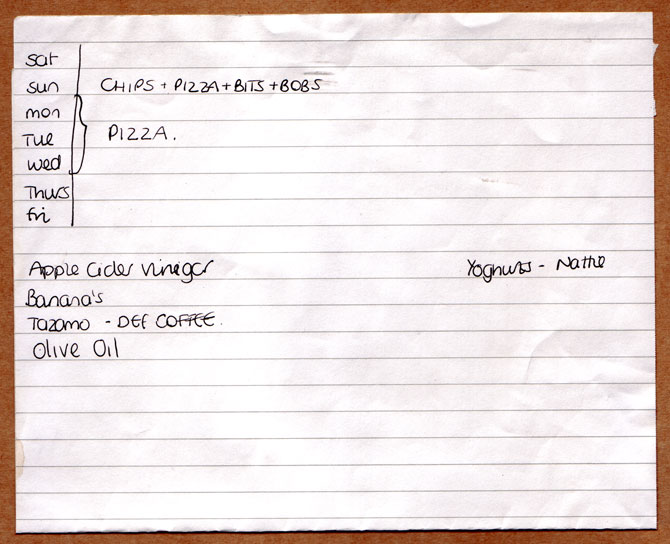 Sat
Sun CHIPS + PIZZA + BITS + BOBS
mon
Tue PIZZA.
wed
Thurs
fri
Apple Cider vinegar
Banana's
Tazamo - DEF COFFEE.
Olive Oil
Yoghurts - Nattie